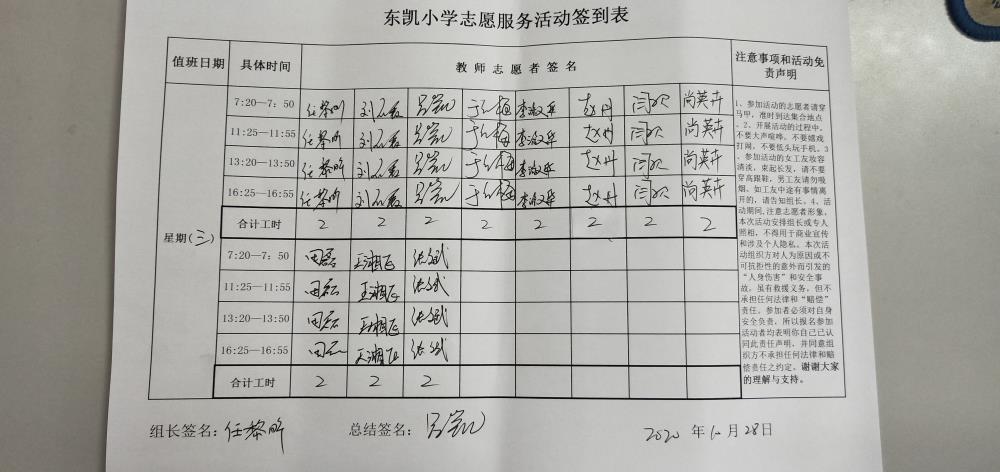 东凯小学志愿服务活动签到表
值班日期 具体时间 教师志愿者签名 注意事项和活动免责声明
7:20—7:50 任黎昕 吕凯 赵丹 闫欢 尚英卉
11:25—11:55 任黎昕 吕凯 赵丹 闫欢 尚英卉
13:20—13:50 任黎昕 吕凯 赵丹 闫欢 尚英卉
16:25—16:55 任黎昕 吕凯 赵丹 闫欢 尚英卉
合计工时 2 2 2 2 2 2 2 2
星期(三)
7:20—7:50 田磊 王湘飞
11:25—11:55 田磊 王湘飞
13:20—13:50 田磊 王湘飞
16:25—16:55 田磊 王湘飞
合计工时 2 2 2
1、参加活动的志愿者请穿
马甲，准时到达集合地点
。2、开展活动的过程中，
不要大声喧哗，不要嬉戏
打闹，不要低头玩手机。3
、参加活动的女工友妆容
清淡，束起长发，请不要
穿高跟鞋，男工友请勿吸
烟。如工友中途有事情离
开的，请告知组长。4、活
动期间，注意志愿者形象。
本次活动安排组长或专人
照相，不得用于商业宣传
和涉及个人隐私。本次活
动组织方对人为原因或不
可抗拒性的意外而引发的
“人身伤害”和安全事
故，虽有救援义务，但不
承担任何法律和“赔偿”
责任。参加者必须对自身
安全负责，所以报名参加
活动者均表明你自己已认
同此责任声明，并同意组
织方不承担任何法律和赔
偿责任之约定。谢谢大家
的理解与支持。
组长签名：任黎昕 总结签名：吕凯 2020 年 10 月 28日